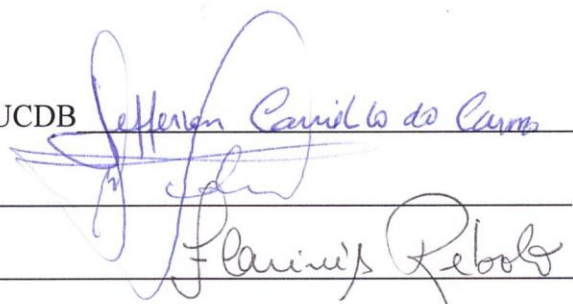 UCDB Jefferson Carriello do Carmo
Flavinês Rebolo